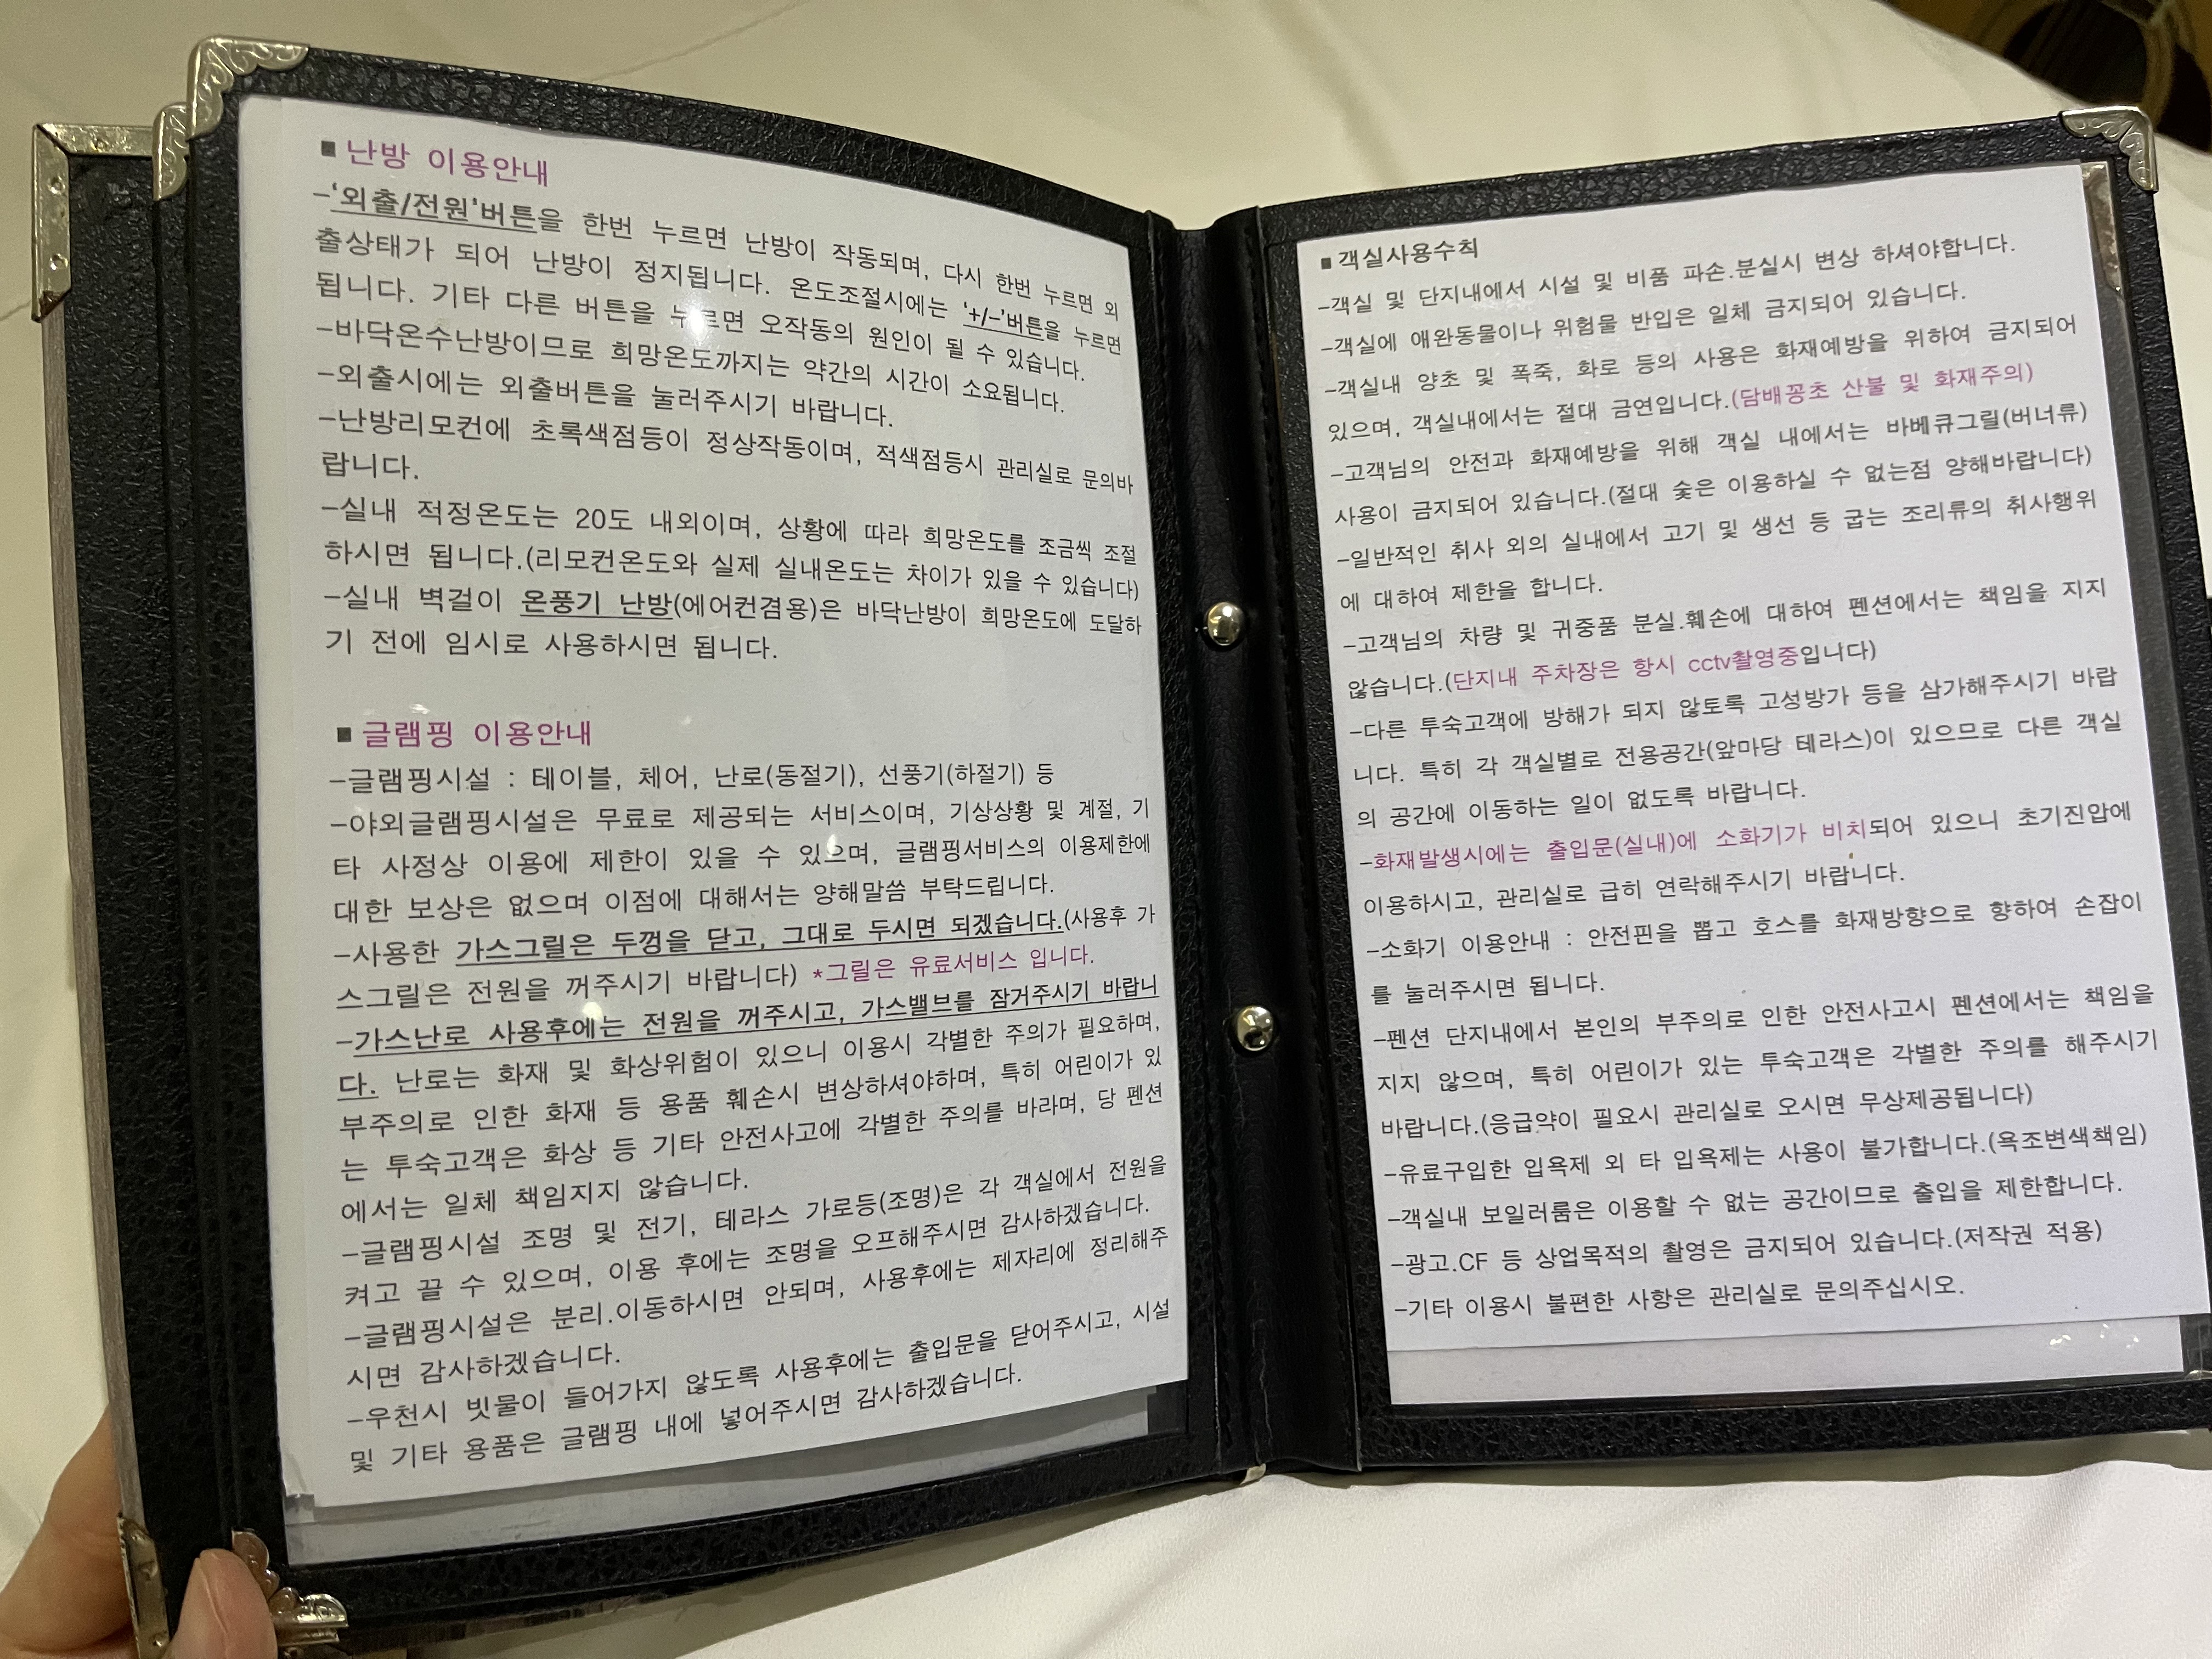 ■ 난방 이용안내
-'외출/전원'버튼을 한번 누르면 난방이 작동되며, 다시 한번 누르면 외
출상태가 되어 난방이 정지됩니다. 온도조절시에는 '+/-'버튼을 누르면
됩니다. 기타 다른 버튼을 누르면 오작동의 원인이 될 수 있습니다.
-바닥온수난방이므로 희망온도까지는 약간의 시간이 소요됩니다.
-외출시에는 외출버튼을 눌러주시기 바랍니다.
-난방리모컨에 초록색점등이 정상작동이며, 적색점등시 관리실로 문의바
랍니다.
-실내 적정온도는 20도 내외이며, 상황에 따라 희망온도를 조금씩 조절
하시면 됩니다.(리모컨온도와 실제 실내온도는 차이가 있을 수 있습니다)
-실내 벽걸이 온풍기 난방(에어컨겸용)은 바닥난방이 희망온도에 도달하
기 전에 임시로 사용하시면 됩니다.
■ 글램핑 이용안내
-글램핑시설 : 테이블, 체어, 난로(동절기), 선풍기(하절기) 등
-야외글램핑시설은 무료로 제공되는 서비스이며, 기상상황 및 계절, 기
타 사정상 이용에 제한이 있을 수 있으며, 글램핑서비스의 이용제한에
대한 보상은 없으며 이점에 대해서는 양해말씀 부탁드립니다.
-사용한 가스그릴은 두껑을 닫고, 그대로 두시면 되겠습니다.(사용후 가
스그릴은 전원을 꺼주시기 바랍니다) *그릴은 유료서비스 입니다.
-가스난로 사용후에는 전원을 꺼주시고, 가스밸브를 잠거주시기 바랍니
다. 난로는 화재 및 화상위험이 있으니 이용시 각별한 주의가 필요하며,
부주의로 인한 화재 등 용품 훼손시 변상하셔야하며, 특히 어린이가 있
는 투숙고객은 화상 등 기타 안전사고에 각별한 주의를 바라며, 당 펜션
에서는 일체 책임지지 않습니다.
-글램핑시설 조명 및 전기, 테라스 가로등(조명)은 각 객실에서 전원을
켜고 끌 수 있으며, 이용 후에는 조명을 오프해주시면 감사하겠습니다.
-글램핑시설은 분리.이동하시면 안되며, 사용후에는 제자리에 정리해주
시면 감사하겠습니다.
-우천시 빗물이 들어가지 않도록 사용후에는 출입문을 닫아주시고, 시설
및 기타 용품은 글램핑 내에 넣어주시면 감사하겠습니다.
■ 객실사용수칙
-객실 및 단지내에서 시설 및 비품 파손.분실시 변상 하셔야합니다.
-객실에 애완동물이나 위험물 반입은 일체 금지되어 있습니다.
-객실내 양초 및 폭죽, 화로 등의 사용은 화재예방을 위하여 금지되어
있으며, 객실내에서는 절대 금연입니다.(담배꽁초 산불 및 화재주의)
-고객님의 안전과 화재예방을 위해 객실 내에서는 바베큐그릴(버너류)
사용이 금지되어 있습니다.(절대 숯은 이용하실 수 없는점 양해바랍니다)
-일반적인 취사 외의 실내에서 고기 및 생선 등 굽는 조리류의 취사행위
에 대하여 제한을 합니다.
-고객님의 차량 및 귀중품 분실.훼손에 대하여 펜션에서는 책임을 지지
않습니다.(단지내 주차장은 항시 cctv촬영중입니다)
-다른 투숙고객에 방해가 되지 않토록 고성방가 등을 삼가해주시기 바랍
니다. 특히 각 객실별로 전용공간(앞마당 테라스)이 있으므로 다른 객실
의 공간에 이동하는 일이 없도록 바랍니다.
-화재발생시에는 출입문(실내)에 소화기가 비치되어 있으니 초기진압에
이용하시고, 관리실로 급히 연락해주시기 바랍니다.
-소화기 이용안내 : 안전핀을 뽑고 호스를 화재방향으로 향하여 손잡이
를 눌러주시면 됩니다.
-펜션 단지내에서 본인의 부주의로 인한 안전사고시 펜션에서는 책임을
지지 않으며, 특히 어린이가 있는 투숙고객은 각별한 주의를 해주시기
바랍니다.(응급약이 필요시 관리실로 오시면 무상제공됩니다)
-유료구입한 입욕제 외 타 입욕제는 사용이 불가합니다.(욕조변색책임)
-객실내 보일러룸은 이용할 수 없는 공간이므로 출입을 제한합니다.
-광고.CF 등 상업목적의 촬영은 금지되어 있습니다.(저작권 적용)
-기타 이용시 불편한 사항은 관리실로 문의주십시오.